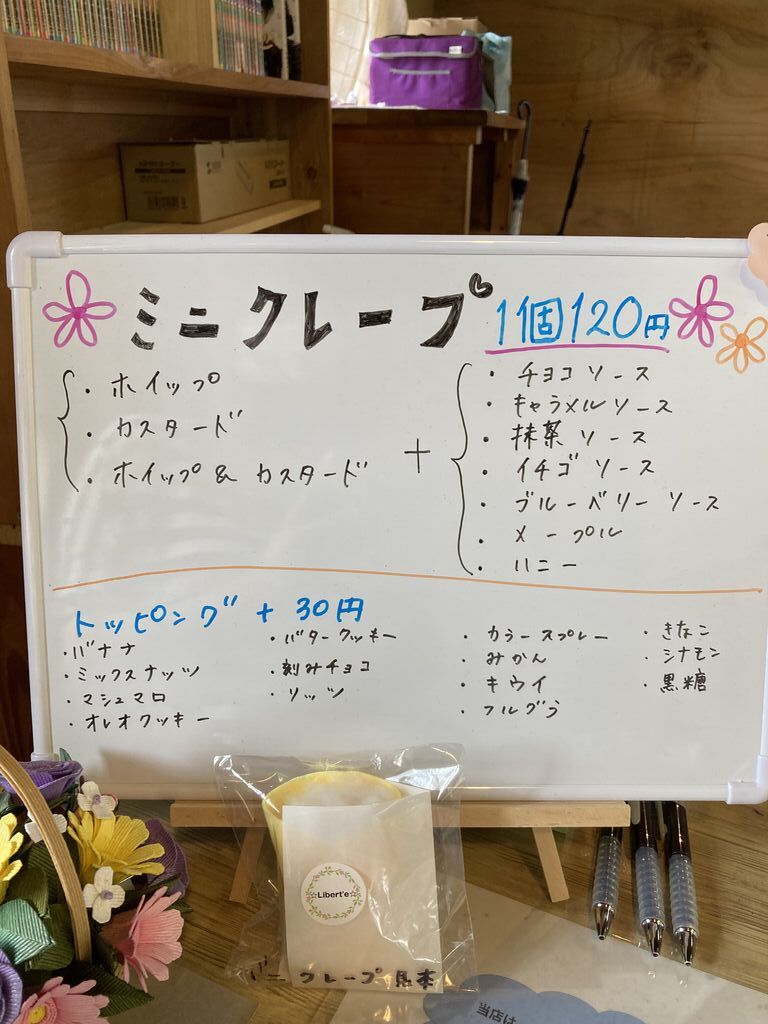 ミニクレープ 1個120円
・ホイップ
・カスタード
・ホイップ&カスタード
+
・チョコソース
・キャラメルソース
・抹茶ソース
・イチゴソース
・ブルーベリーソース
・メープル
・ハニー
トッピング+30円
・バナナ
・ミックスナッツ
・マシュマロ
・オレオクッキー
・バタークッキー
・刻みチョコ
・リッツ
・カラースプレー
・みかん
・キウイ
・フルグラ
・きなこ
・シナモン
・黒糖
☆Libert'e☆
ミニクレープ見本
当店は